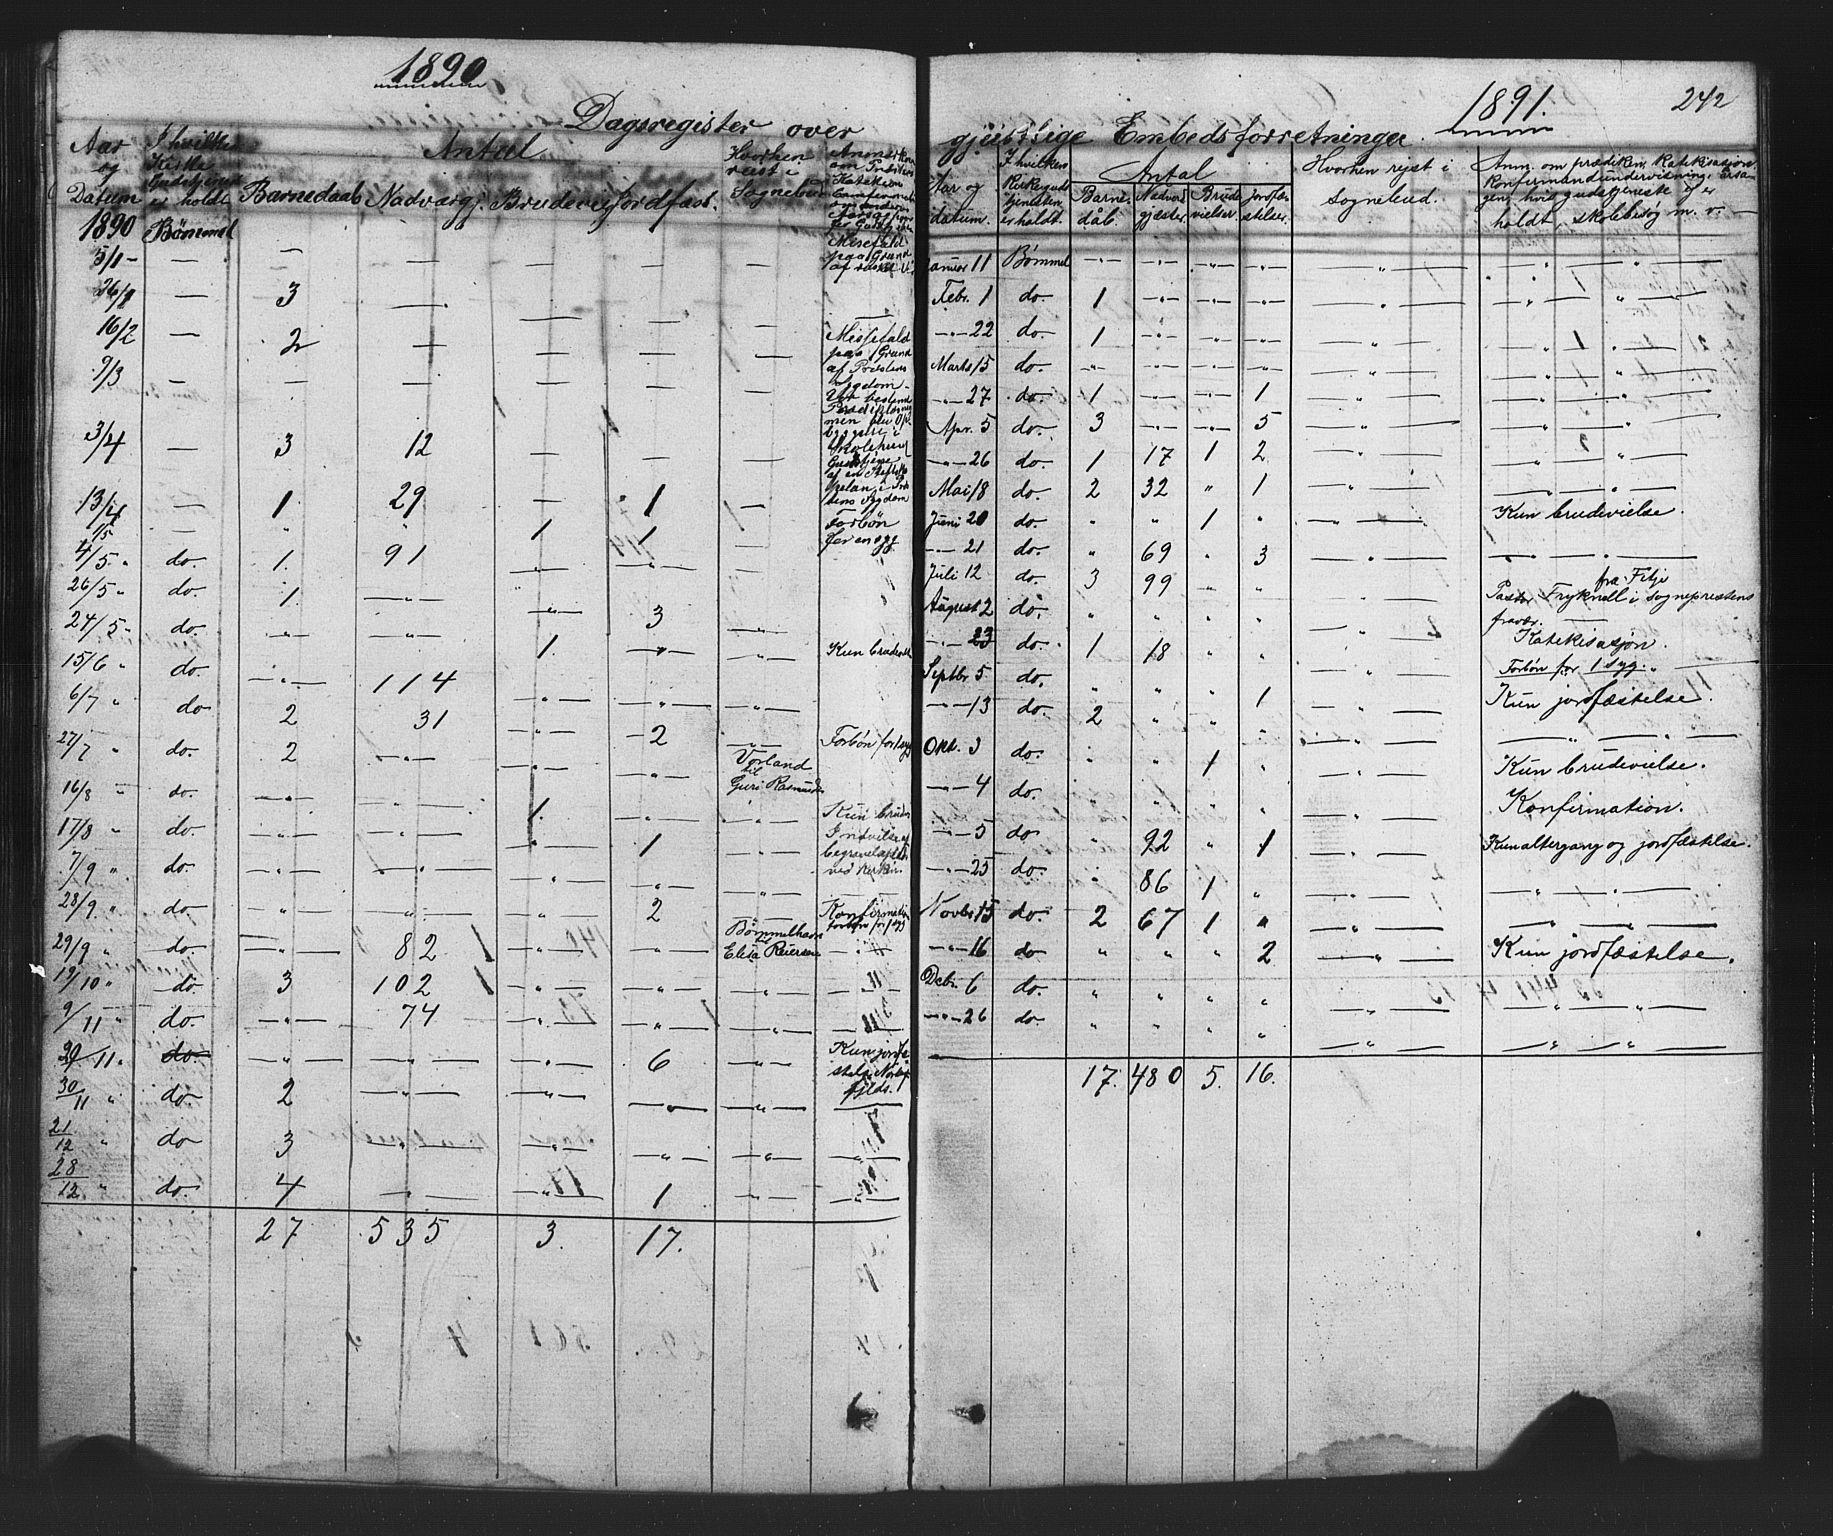 1890
Dagsregister over
Aar og Datum | I hvilken Kirke Gudstjeneste er holdt | Antal | Hvorhen reist i Sognebud
Barnedaab | Nadvergj. | Brudevi. | Jordfæst.
1890 Bømmel
5/1 — — — — — — Missefald paa Grund af
26/1 — 3 — — — —
16/2 — 2 — — — — Missefald paa Grund af Præstens sygdom
9/3 — — — — — —
3/4 — 3 12 — — —
13/4 — 1 29 — 1 —
1/5 — " — 1 1 — Forbøn for en syg
4/5 " do. 1. 91 —"— —"— —
26/5 " do. 1. —"— —"— 3 —"—
24/5 " do. —"— —"— 1. —"— —"— Kun brudevi
15/6 " do —"— 114 —"— —"—
6/7 " do 2 31 —"— 2 —"— Forbøn for 1 syg
27/7 " do. 2 —"— —"— —"— Vorland til Guri Rasmusd.
16/8 " do. —"— —"— 1. Kun brudev
17/8 " do —"— —"— —"— 1 —"— Indvielse af begravelsepl. ved Kirken.
7/9 " do. —"— —"— —"— —"—
28/9 " do. —"— —"— —"— 2 —"— Konfirmation forbøn for 1 syg
29/9 " do —"— 82 —"— —"— Bømmelhavn Elisa Reiersen —"—
19/10 " do. 3 102 —"— —"— —"— —"—
9/11 " do. —"— 74 —"— —"— —"— —"—
29/11 " do. —"— —"— —"— 6 —"— Kun jordfæstelse
30/11 " do 2 —"— —"— —"— —"—
21/12 " do 3 —"— —"— —"— —"— —"—
28/12 " do. 4 —"— —"— 1 —"— —"—
27 535 3. 17.
1891. 242
gjeistlige Embedsforretninger.
Aar og datum. | I hvilken Kirke gudstjenesten er holdt. | Antal | Hvorhen rejst i sognebud. | Anm. om prædiken, Katekisasjon, Konfirmandundervisning, årsagen, hvis gudstjeneste ej er holdt, skolebesøg m. v. —
Barnedåb. | Nadvergjæster. | Brudevielser. | Jordfæstelser.
Januar 11 Bømmel —"— —"— —"— —"— — " — — " — " —
Febr. 1 do. 1 —"— —"— —"— — " — — " — " —
—"— 22 do. 1 —"— —"— —"— — " — — " — " —
Marts 15 do. —"— —"— —"— —"— — " — — " — " —
—"— 27 do. 1 —"— —"— 1 — " — — " — " —
Apr. 5 do. 3 —"— —"— 5 — " — — " — " —
—"— 26 do. 1 17 1 2. — " — — " — " —
Mai 18 do. 2 32 " 1 — " — — " — " —
Juni 20 do. " " 1 " — " — Kun brudevielse.
—"— 21 do. " 69 " 3 — " — — " — " —
Juli 12 do. 3 99 " " — " — fra Fitje
August 2 do. " " " " — " — Pastor Fryknell i sogneprestens fravær. —
—"— 23 do. 1 18 " " — " — Katekisasjon. Forbøn for 1 syg.
Septbr 5 do. " " " 1 — " — Kun jordfæstelse.
—"— 13 do. 2 " " " — " — — " — " —
Okt. 3 do. " " 1 " — " — Kun brudevielse.
—"— 4 do. " " " " — " — Konfirmation.
—"— 5 do " 92 " 1 — " — Kun altergang og jordfæstelse.
—"— 25 do. " 86 1 " — " — — " — " —
Novbr 15 do. 2 67 1 " — " — — " — " —
—"— 16 do " " " 2 — " — Kun jordfæstelse.
Debr. 6 do. " " " " — " — — " — " —
—"— 26 do. " " " " — " — — " — " —
17. 480 5. 16.